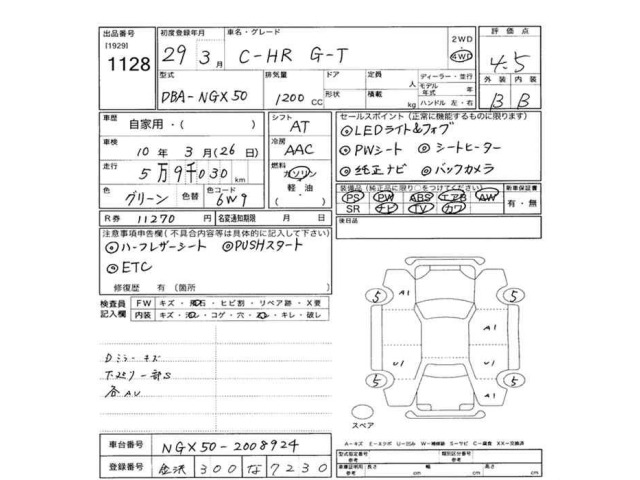 出品番号 初度登録年月 車名・グレード 2WD・4WD 評価点
[1929]
1128 29年3月 C-HR G-T 4.5
型式 排気量 ドア 定員 人 ディーラー・並行 外装 内装
DBA-NGX50 1200CC 形状 積載 kg モデル年式 年 ハンドル 左・右 B B
車歴 自家用・( ) シフト AT セールスポイント(正常に機能するものに限ります)
◎LEDライト&フォグ
車検 10年3月(26日) 冷房 AAC ◎PWシート ◎シートヒーター
走行 5万9千030km 燃料 ガソリン ◎純正ナビ ◎バックカメラ
軽油・( )
色 グリーン 色替 色コード 6W9 装備品(純正品に限り○をつけてください) 新車保証書
PS PW ABS エアB AW 有・無
SR ナビ TV カワ
R券 11270円 名変通知期限 月 日 後日品
注意事項申告欄(不具合内容等は具体的に記入して下さい)
◎ハーフレザーシート ◎PUSHスタート
◎ETC
修復歴 有(箇所
検査員記入欄 FW キズ・飛石・ヒビ割・リペア跡・X要
内装 キズ・汚レ・コゲ・穴・スレ・キレ・破レ
5 A1 5
A1
Dミラーキズ U1 U1
5 5
各AU A1
スペア
A-キズ E-エクボ U-凹み W-補修跡 S-サビ C-腐食 XX-交換済
車台番号 NGX50-2008924 型式指定番号 参考 類別区分番号 参考
登録番号 金沢 300 な 7230 車庫証明用 参考 長さ cm 幅 cm 高さ cm